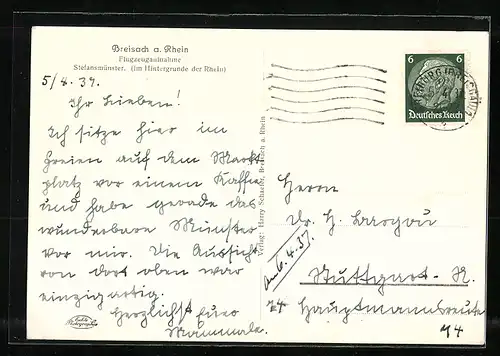 Breisach a. Rhein
Flugzeugaufnahme
Stefansmünster. (im Hintergrunde der Rhein)
5/4.37.
Ihr Lieben!
Ich sitze hier im
Freien auf dem Markt
platz vor einem Kaffee
und habe gerade das
wunderbare Münster
vor mir. Die Aussicht
von dort oben war
einzigartig.
Herzlichst Euer
Mammale.
Verlag: Harry Schaefer, Breisach a. Rhein
6 6
Deutsches Reich
FREIBURG (BREISGAU)
Herrn
Dr. H.
am 6.4.37.
Stuttgart-N.
Hauptmannsreute
74